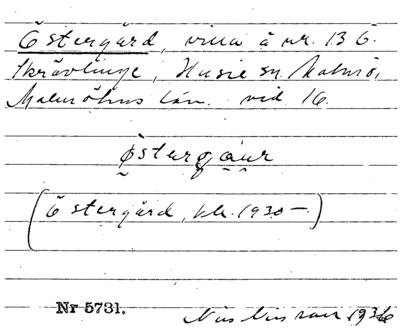 Östergård, villa å nr. 13 6.
Skrävlinge, Husie sn. Malmö,
Malmöhus län. vid 16.
östergåur
(Östergård, kk. 1930–)
Nr 5731.
Nils Nilsson 1936